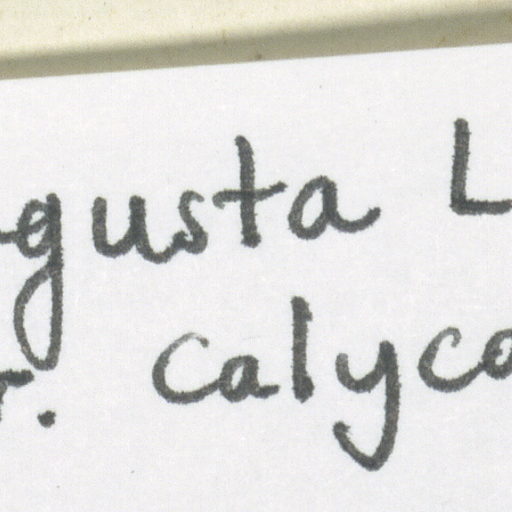 gusta L
r. calyco